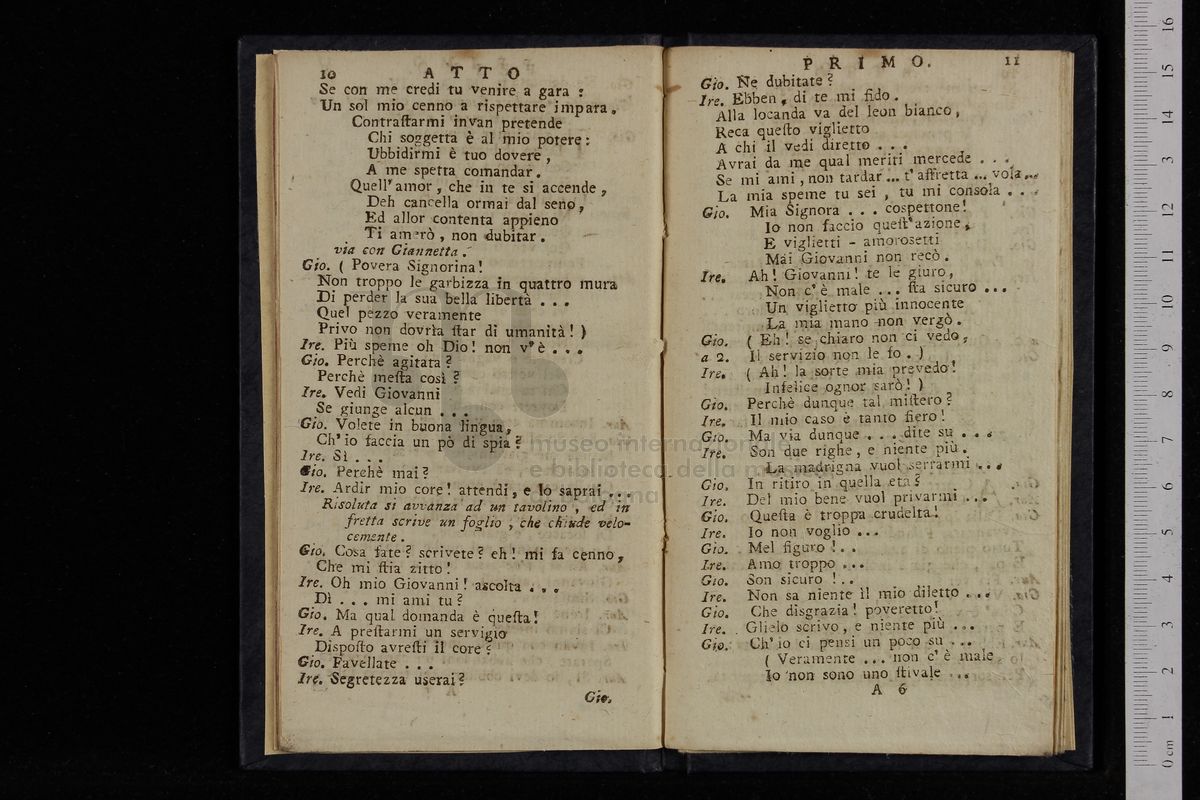 10 ATTO
Se con me credi tu venire a gara :
Un sol mio cenno a rispettare impara.
Contraſtarmi invan pretende
Chi soggetta è al mio potere:
Ubbidirmi è tuo dovere ,
A me spetta comandar.
Quell' amor , che in te si accende ,
Deh cancella ormai dal seno,
Ed allor contenta appieno
Ti amerò , non dubitar.
via con Giannetta.
Gio. ( Povera Signorina!
Non troppo le garbizza in quattro mura
Di perder la sua bella libertà ...
Quel pezzo veramente
Privo non dovrìa ſtar di umanità! )
Ire. Più speme oh Dio! non v' è ...
Gio. Perchè agitata?
Perchè meſta così ?
Ire. Vedi Giovanni
Se giunge alcun ...
Gio. Volete in buona lingua,
Ch' io faccia un pò di spia?
Ire. Sì ...
Gio. Perchè mai?
Ire. Ardir mio core! attendi, e lo saprai ...
Risoluta si avvanza ad un tavolino , ed in
fretta scrive un foglio , che chiude velo-
cemente.
Gio. Cosa fate? scrivete? eh! mi fa cenno,
Che mi ſtia zitto!
Ire. Oh mio Giovanni! ascolta ...
Dì ... mi ami tu?
Gio. Ma qual domanda è queſta!
Ire. A preſtarmi un servigio
Dispoſto avreſti il core?
Gio. Favellate ...
Ire. Segretezza userai?
Gio.
PRIMO. 11
Gio. Ne dubitate?
Ire. Ebben, di te mi fido.
Alla locanda va del leon bianco,
Reca queſto viglietto
A chi il vedi diretto ...
Avrai da me qual meriti mercede ...
Se mi ami , non tardar ... t' affretta ... vola...
La mia speme tu sei , tu mi consola ...
Gio. Mia Signora ... cospettone!
Io non faccio queſt' azione,
E viglietti - amorosetti
Mai Giovanni non recò.
Ire. Ah! Giovanni! te le giuro,
Non c' è male ... ſta sicuro ...
Un viglietto più innocente
La mia mano non vergò.
Gio. ( Eh! se chiaro non ci vedo,
a 2. Il servizio non le fo. )
Ire. ( Ah! la sorte mia prevedo!
Infelice ognor sarò! )
Gio. Perchè dunque tal miſtero?
Ire. Il mio caso è tanto fiero!
Gio. Ma via dunque ... dite su ...
Ire. Son due righe, e niente più.
La madrigna vuol serrarmi ...
Gio. In ritiro in quella età?
Ire. Del mio bene vuol privarmi ...
Gio. Queſta è troppa crudeltà!
Ire. Io non voglio ...
Gio. Mel figuro! ..
Ire. Amo troppo ...
Gio. Son sicuro! ..
Ire. Non sa niente il mio diletto ...
Gio. Che disgrazia! poveretto!
Ire. Glielo scrivo, e niente più ...
Gio. Ch' io ci pensi un poco su ...
( Veramente ... non c' è male
Io non sono uno ſtivale ...
A 6
museo internazionale
e biblioteca della musica
0 cm 1 2 3 4 5 6 7 8 9 10 11 12 13 14 15 16